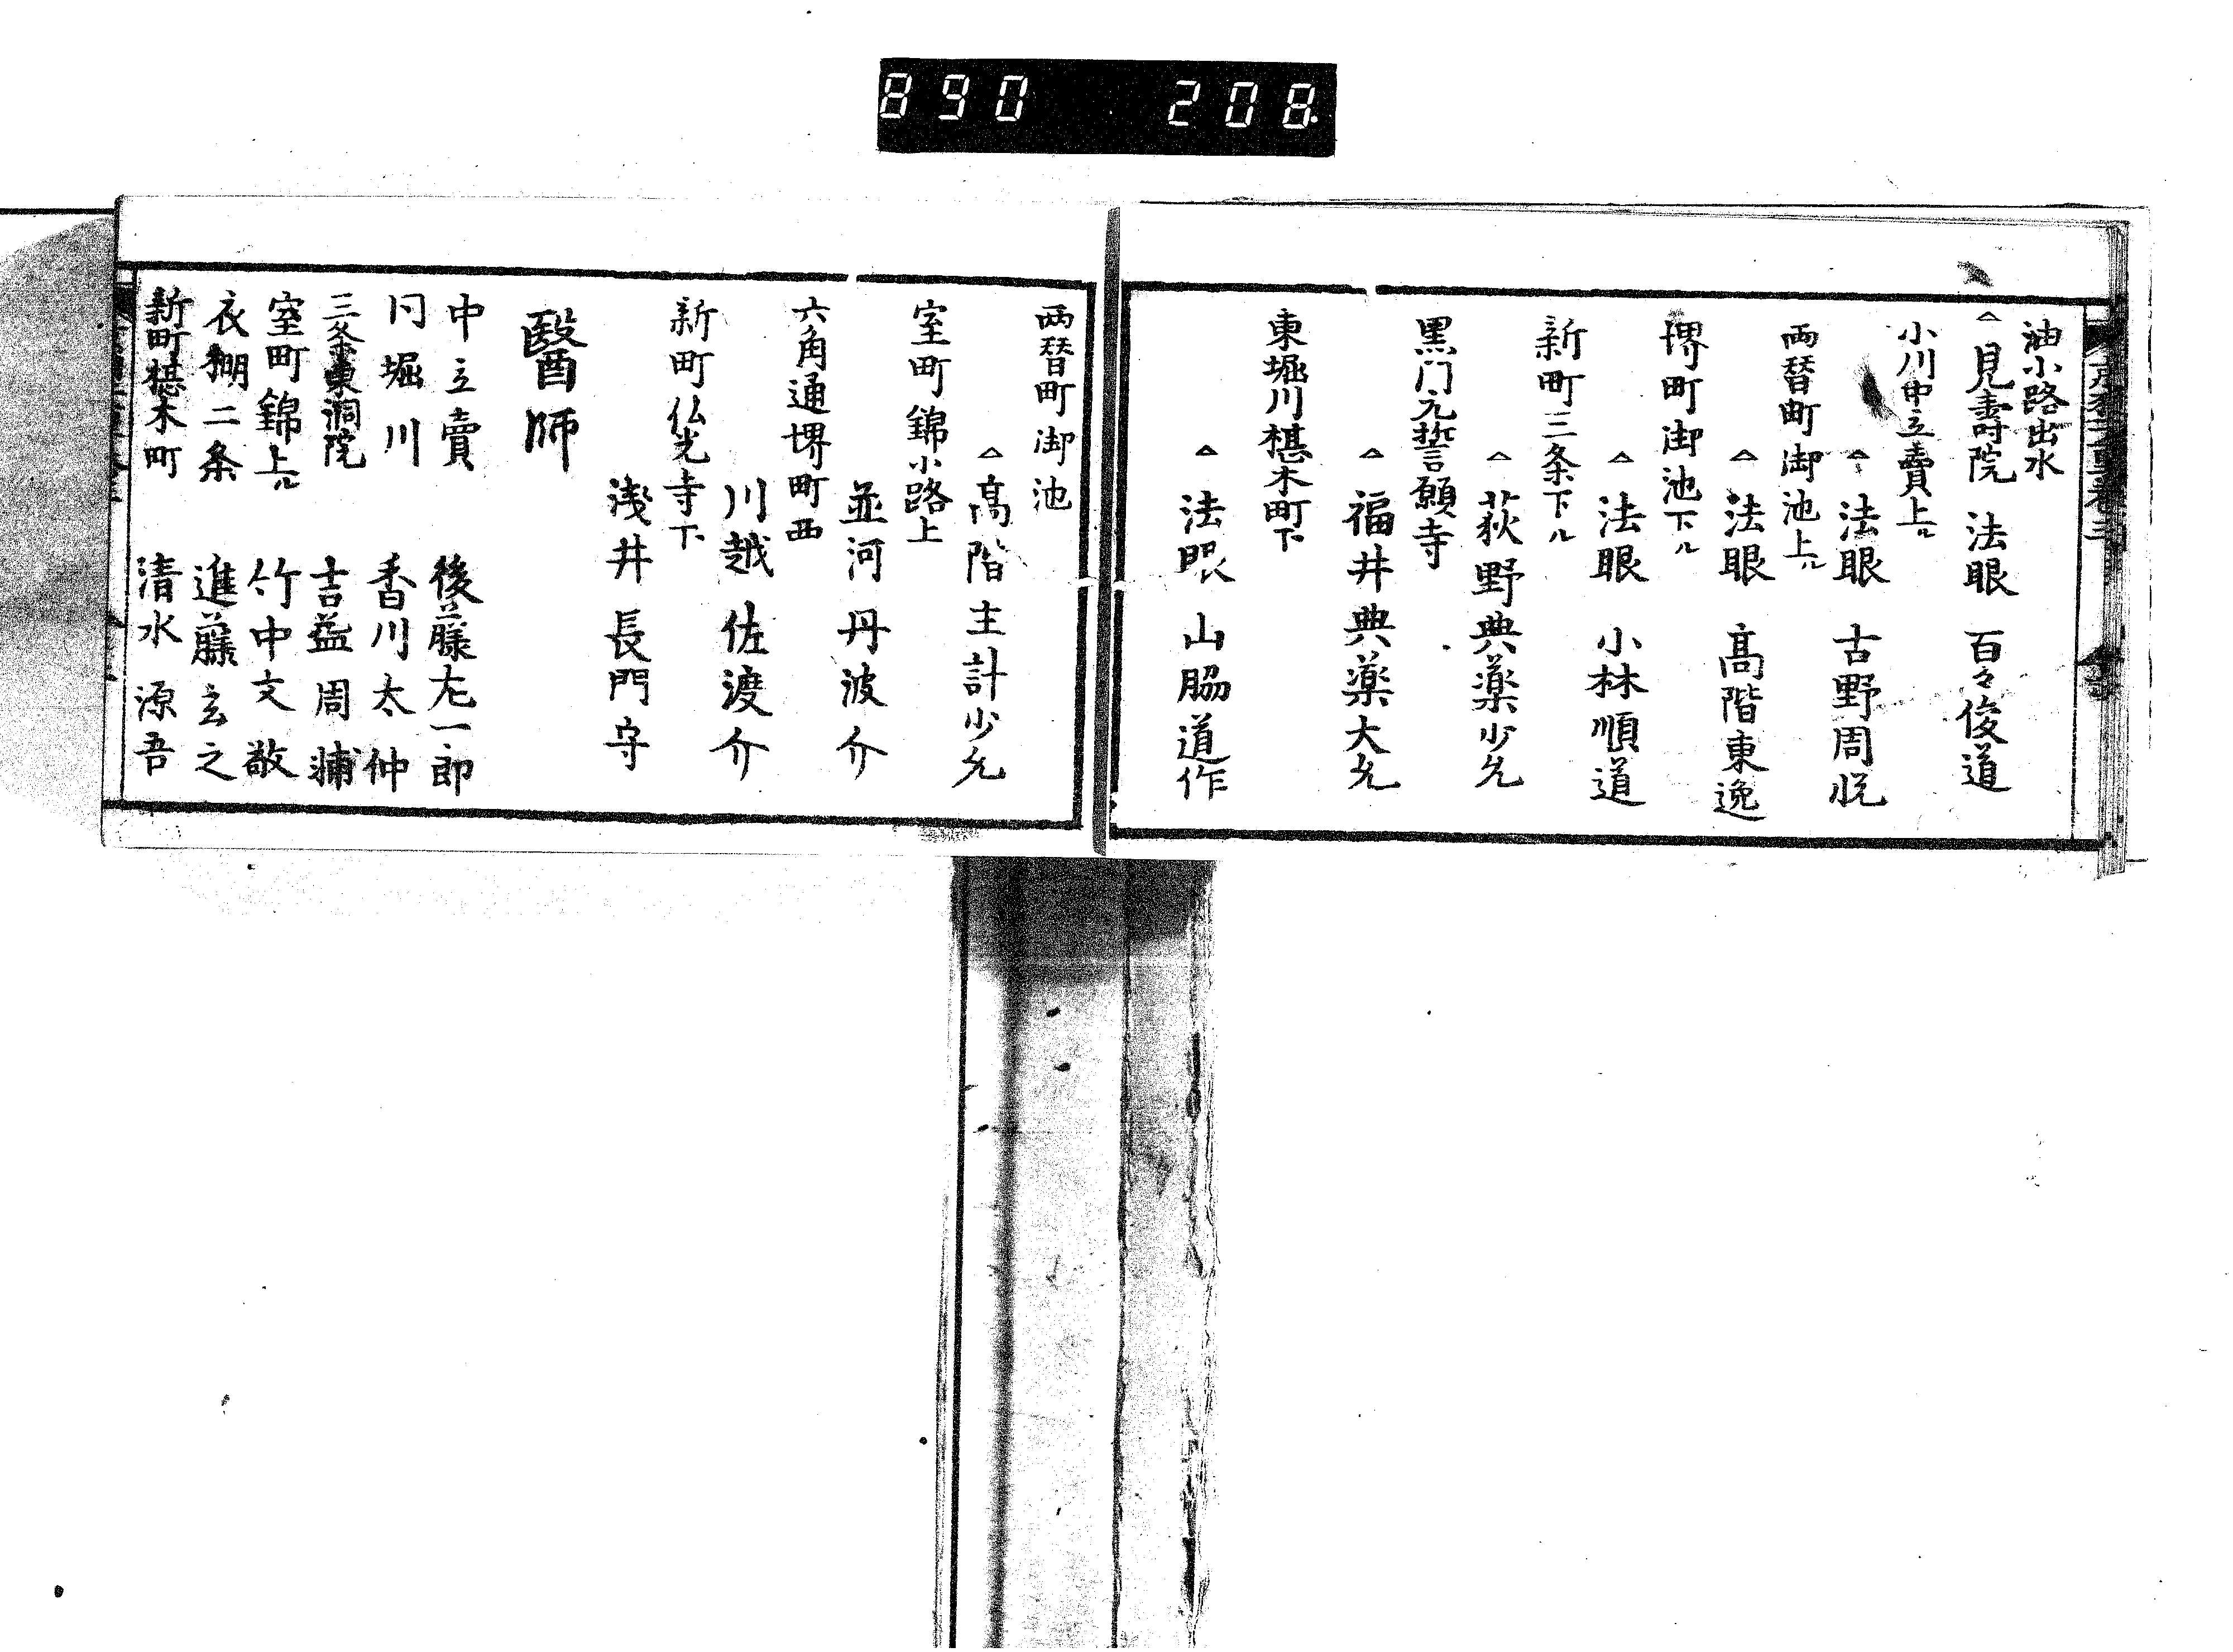 890 208.
油小路出水
△見壽院 法眼 百々俊道
小川中立賣上ル
△法眼 古野周悦
両替町御池上ル
△法眼 髙階東逸
堺町御池下ル
△法眼 小林順道
新町三条下ル
△荻野典薬少允
黒门元誓願寺
△福井典薬大允
東堀川椹木町下
△法眼 山脇道作
両替町御池
△髙階主計少允
室町錦小路上
並河丹波介
六角通堺町西
川越佐渡介
新町仏光寺下
浅井長門守
醫師
中立賣 後藤左一郎
同堀川 香川太仲
三条東洞院 吉益周輔
室町錦上ル 竹中文敬
衣棚二条 進藤玄之
新町椹木町 清水源吾